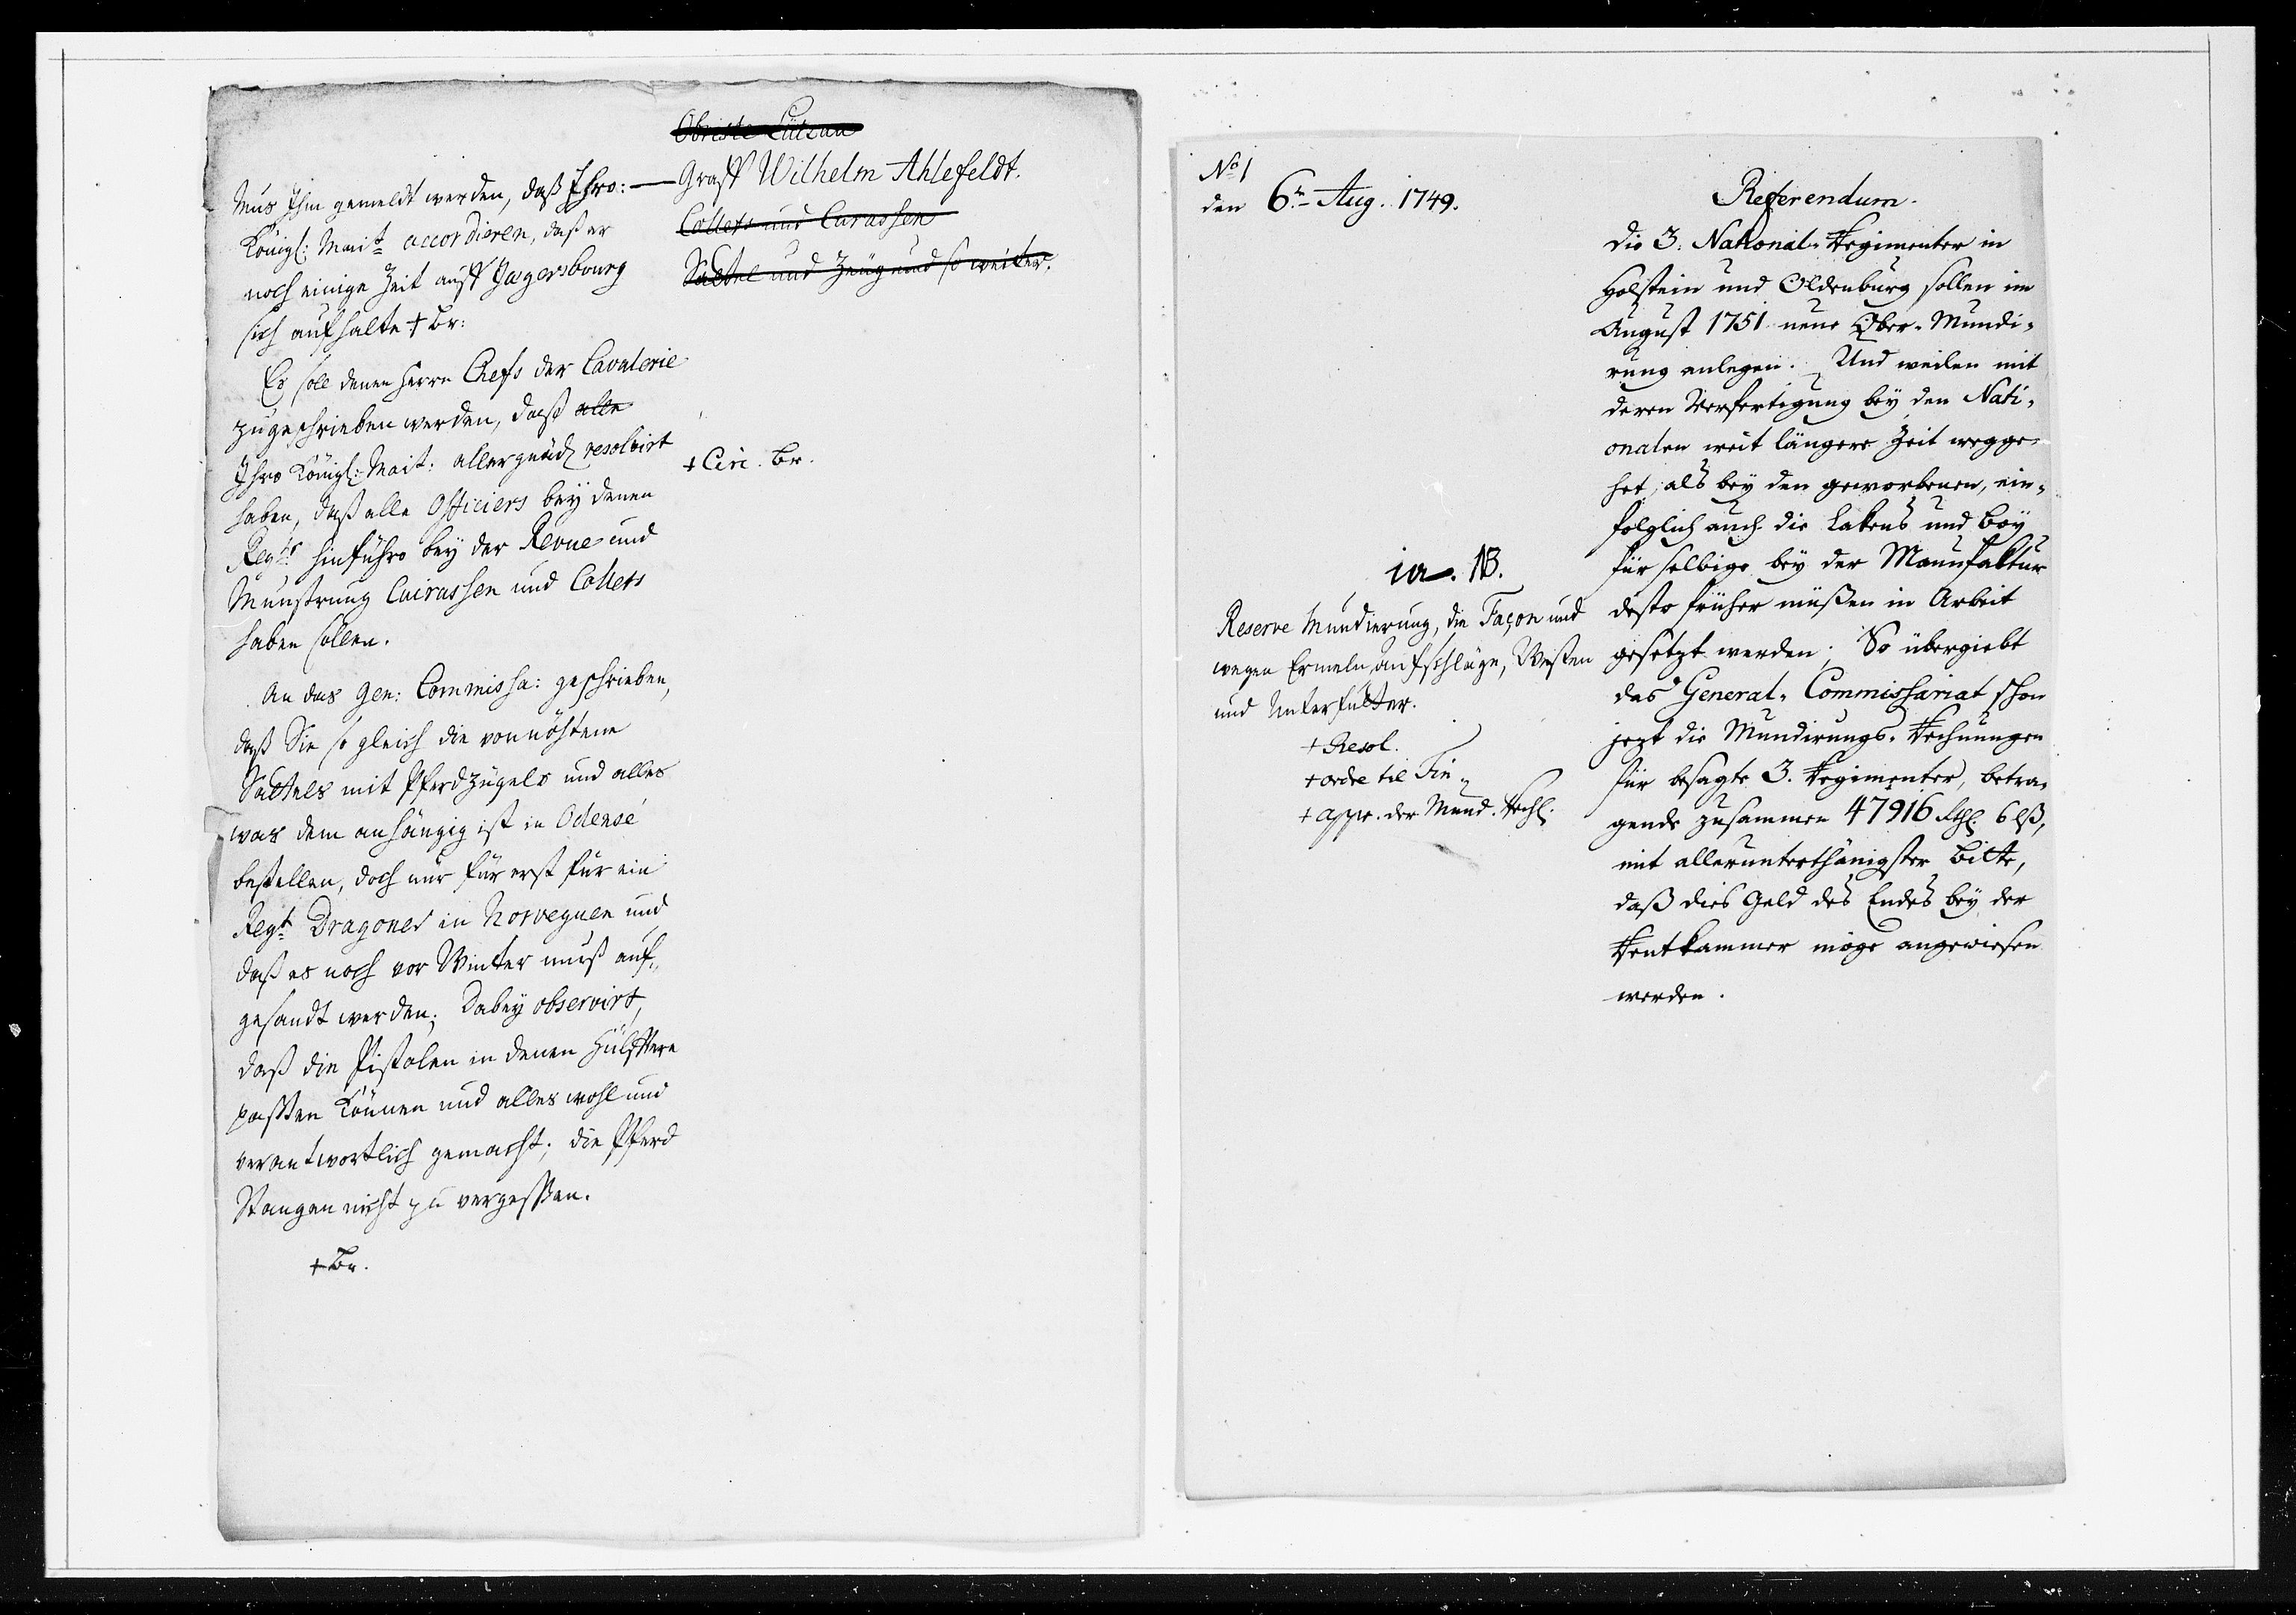 Obriste Lützau
Graff Wilhelm Ahlefeldt.
Collets und Curassen
Sattel und Zeug und so weiter.
Mus Ihm gemeldt werden, daß Ihro: —
Königl: Mait accordieren, daß er
noch einige Zeit auff Jægersbourg
sich aufhalte + Br:
Es soll denen Herrn Chefs der Cavalerie
zugeschrieben werden, daß alle
Ihro Königl: Mait: allergnäd resolvirt
+ Circ. Br.
haben, daß alle Officiers bey denen
Regtr hinführo bey der Revue und
Munstrung Cuirassen und Collets
haben sollen.
An das Gen: Commissa: geschrieben,
daß Sie so gleich die vonnöhtene
Sattels mit Pferdzügels und alles
was dem anhängig ist in Odensé
bestellen, doch nur für erst für ein
Regt Dragoner in Norveguen und
daß es noch vor Winter muß auf„
gesandt werden; Dabey observirt,
daß die Pistolen in denen Hülfftern
passen können und alles wohl und
verantwortlich gemacht; die Pferd
Stangen nicht zu vergessen.
+ Br.
No 1
den 6ten Aug. 1749.
Referendum.
Die 3. National-Regimenter in
Holstein und Oldenburg sollen im
August 1751 neue Ober-Mundi-
rung anlegen. Und weilen mit
deren Verfertigung bey den Nati-
onalen weit längere Zeit wegge-
het, als bey den geworbenen, ein-
folglich auch die Lakens und Boy
für selbige bey der Manufaktur
desto früher müßen in Arbeit
gesetzt werden; So übergiebt
das General-Commissariat schon
jezt die Mundirungs-Rechnungen
für besagte 3. Regimenter, betra-
gende zusammen 47916 Rthl. 6 lß,
mit allerunterthänigster Bitte,
daß dies Geld des Endes bey der
Rentkammer möge angewiesen
werden.
ia. NB.
Reserve Mundierung, die Façon und
wegen Ermeln, aufschläge, Westen
und Unterfutter.
+ Resol.
+ ordre til Fin
+ appr. der Mund. Rechl.